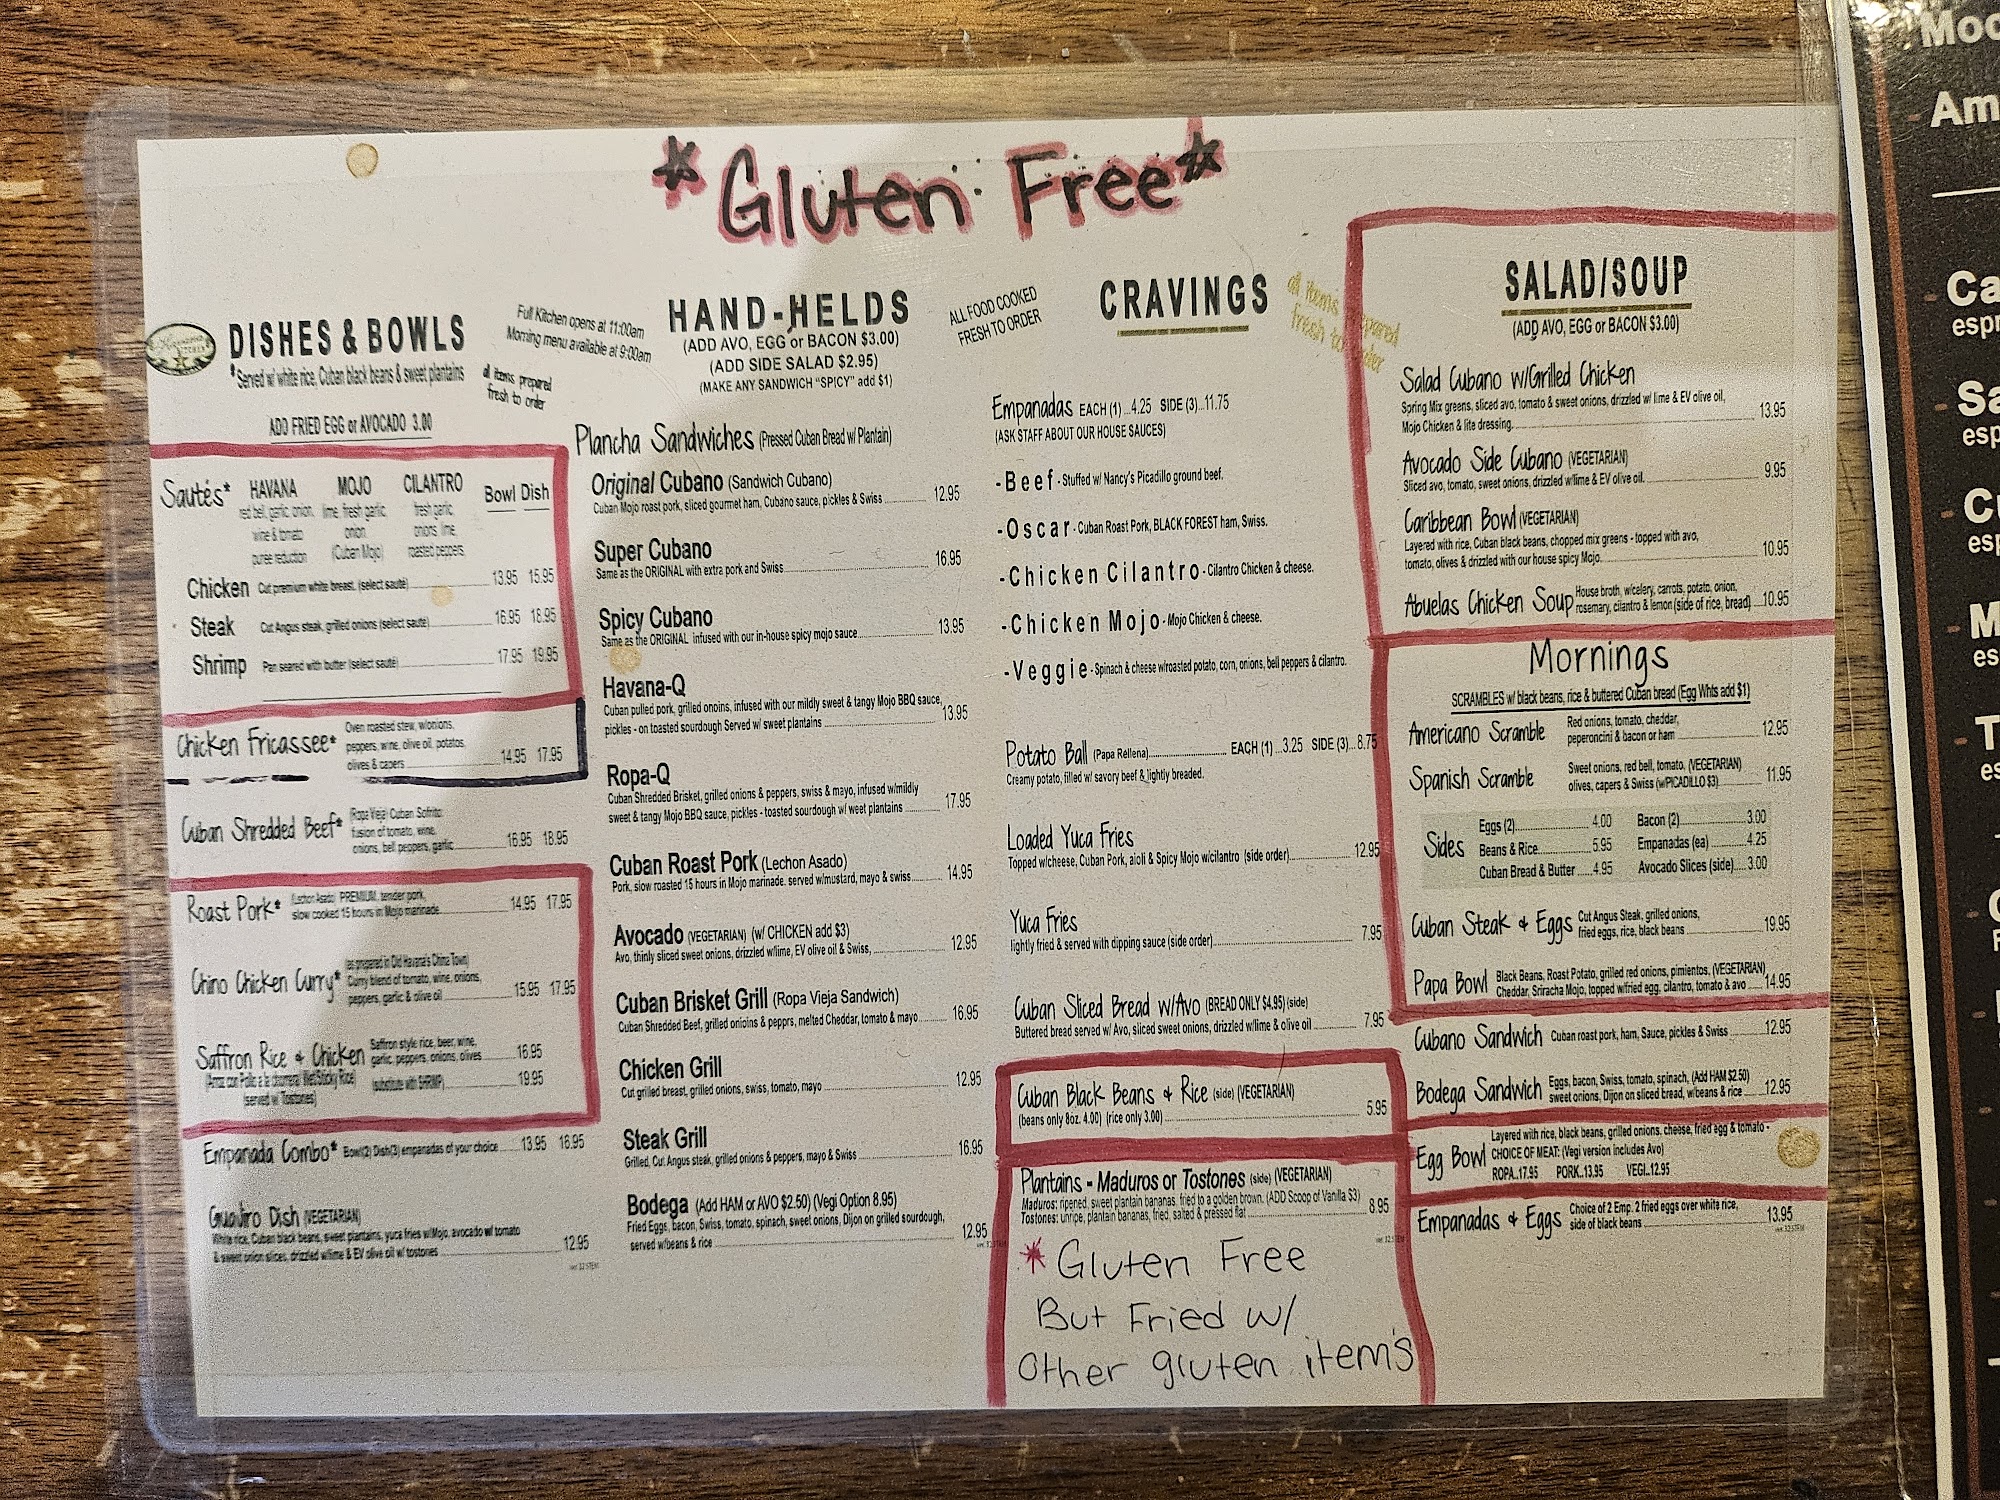 *Gluten Free*
DISHES & BOWLS
*Served w/ white rice, Cuban black beans & sweet plantains
all items prepared
fresh to order
ADD FRIED EGG or AVOCADO 3.00
Full Kitchen opens at 11:00am
Morning menu available at 9:00am
Sautés* HAVANA MOJO CILANTRO Bowl Dish
red bell, garlic onion, lime, fresh garlic, fresh garlic,
wine & tomato onion onions, lime,
puree reduction (Cuban Mojo) roasted peppers
Chicken Cut premium white breast, (select sauté) 13.95 15.95
Steak Cut Angus steak, grilled onions (select sauté) 16.95 18.95
Shrimp Pan seared with butter (select sauté) 17.95 19.95
Chicken Fricassee* Oven roasted stew, w/onions,
peppers, wine, olive oil, potatos,
olives & capers 14.95 17.95
Cuban Shredded Beef* (Ropa Vieja) Cuban Sofrito:
fusion of tomato, wine,
onions, bell peppers, garlic 16.95 18.95
Roast Pork* (Lechon Asado) PREMIUM, tender pork,
slow cooked 15 hours in Mojo marinade 14.95 17.95
Chino Chicken Curry* (as prepared in Old Havana's China Town)
Curry blend of tomato, wine, onions,
peppers, garlic & olive oil 15.95 17.95
Saffron Rice & Chicken Saffron style rice, beer, wine,
garlic, peppers, onions, olives 16.95
(Arroz con Pollo a la chorrera/ Wet/Sticky Rice) (substitute with SHRIMP) 19.95
served w/ Tostones)
Empanada Combo* Bowl(2) Dish(3) empanadas of your choice 13.95 16.95
Guajiro Dish (VEGETARIAN)
White rice, Cuban black beans, sweet plantains, yuca fries w/Mojo, avocado w/ tomato
& sweet onion slices, drizzled w/lime & EV olive oil w/ tostones 12.95
HAND-HELDS
(ADD AVO, EGG or BACON $3.00)
(ADD SIDE SALAD $2.95)
(MAKE ANY SANDWICH "SPICY" add $1)
Plancha Sandwiches (Pressed Cuban Bread w/ Plantain)
Original Cubano (Sandwich Cubano)
Cuban Mojo roast pork, sliced gourmet ham, Cubano sauce, pickles & Swiss 12.95
Super Cubano
Same as the ORIGINAL with extra pork and Swiss 16.95
Spicy Cubano
Same as the ORIGINAL infused with our in-house spicy mojo sauce 13.95
Havana-Q
Cuban pulled pork, grilled onoins, infused with our mildly sweet & tangy Mojo BBQ sauce,
pickles - on toasted sourdough Served w/ sweet plantains 13.95
Ropa-Q
Cuban Shredded Brisket, grilled onions & peppers, swiss & mayo, infused w/mildly
sweet & tangy Mojo BBQ sauce, pickles - toasted sourdough w/ weet plantains 17.95
Cuban Roast Pork (Lechon Asado)
Pork, slow roasted 15 hours in Mojo marinade. served w/mustard, mayo & swiss 14.95
Avocado (VEGETARIAN) (w/ CHICKEN add $3)
Avo, thinly sliced sweet onions, drizzled w/lime, EV olive oil & Swiss, 12.95
Cuban Brisket Grill (Ropa Vieja Sandwich)
Cuban Shredded Beef, grilled onioins & pepprs, melted Cheddar, tomato & mayo 16.95
Chicken Grill
Cut grilled breast, grilled onions, swiss, tomato, mayo 12.95
Steak Grill
Grilled, Cut Angus steak, grilled onions & peppers, mayo & Swiss 16.95
Bodega (Add HAM or AVO $2.50) (Vegi Option 8.95)
Fried Eggs, bacon, Swiss, tomato, spinach, sweet onions, Dijon on grilled sourdough,
served w/beans & rice 12.95
ALL FOOD COOKED
FRESH TO ORDER
CRAVINGS
all items prepared
fresh to order
Empanadas EACH (1) ...4.25 SIDE (3)...11.75
(ASK STAFF ABOUT OUR HOUSE SAUCES)
-Beef - Stuffed w/ Nancy's Picadillo ground beef.
-Oscar - Cuban Roast Pork, BLACK FOREST ham, Swiss.
-Chicken Cilantro - Cilantro Chicken & cheese.
-Chicken Mojo - Mojo Chicken & cheese.
-Veggie - Spinach & cheese w/roasted potato, corn, onions, bell peppers & cilantro.
Potato Ball (Papa Rellena) EACH (1) ...3.25 SIDE (3)...8.75
Creamy potato, filled w/ savory beef & lightly breaded.
Loaded Yuca Fries
Topped w/cheese, Cuban Pork, aioli & Spicy Mojo w/cilantro (side order) 12.95
Yuca Fries
lightly fried & served with dipping sauce (side order) 7.95
Cuban Sliced Bread w/Avo (BREAD ONLY $4.95) (side)
Buttered bread served w/ Avo, sliced sweet onions, drizzled w/lime & olive oil 7.95
Cuban Black Beans & Rice (side) (VEGETARIAN)
(beans only 8oz. 4.00) (rice only 3.00) 5.95
Plantains - Maduros or Tostones (side) (VEGETARIAN)
Maduros: ripened, sweet plantain bananas, fried to a golden brown. (ADD Scoop of Vanilla $3)
Tostones: unripe, plantain bananas, fried, salted & pressed flat 8.95
* Gluten Free
But Fried w/
Other gluten item's
SALAD/SOUP
(ADD AVO, EGG or BACON $3.00)
Salad Cubano w/Grilled Chicken
Spring Mix greens, sliced avo, tomato & sweet onions, drizzled w/ lime & EV olive oil,
Mojo Chicken & lite dressing. 13.95
Avocado Side Cubano (VEGETARIAN)
Sliced avo, tomato, sweet onions, drizzled w/lime & EV olive oil. 9.95
Caribbean Bowl (VEGETARIAN)
Layered with rice, Cuban black beans, chopped mix greens - topped with avo,
tomato, olives & drizzled with our house spicy Mojo. 10.95
Abuelas Chicken Soup House broth, w/celery, carrots, potato, onion,
rosemary, cilantro & lemon (side of rice, bread) 10.95
Mornings
SCRAMBLES w/ black beans, rice & buttered Cuban bread (Egg Whts add $1)
Americano Scramble Red onions, tomato, cheddar,
peperoncini & bacon or ham 12.95
Spanish Scramble Sweet onions, red bell, tomato, (VEGETARIAN)
olives, capers & Swiss (w/PICADILLO $3) 11.95
Sides Eggs (2) 4.00 Bacon (2) 3.00
Beans & Rice 5.95 Empanadas (ea) 4.25
Cuban Bread & Butter 4.95 Avocado Slices (side) 3.00
Cuban Steak & Eggs Cut Angus Steak, grilled onions,
fried eggs, rice, black beans 19.95
Papa Bowl Black Beans, Roast Potato, grilled red onions, pimientos, (VEGETARIAN)
Cheddar, Sriracha Mojo, topped w/fried egg, cilantro, tomato & avo 14.95
Cubano Sandwich Cuban roast pork, ham, Sauce, pickles & Swiss 12.95
Bodega Sandwich Eggs, bacon, Swiss, tomato, spinach, (Add HAM $2.50)
sweet onions, Dijon on sliced bread, w/beans & rice 12.95
Egg Bowl Layered with rice, black beans, grilled onions, cheese, fried egg & tomato -
CHOICE OF MEAT: (Vegi version includes Avo)
ROPA..17.95 PORK..13.95 VEGI..12.95
Empanadas & Eggs Choice of 2 Emp. 2 fried eggs over white rice,
side of black beans 13.95
Am
Ca
espr
Sa
esp